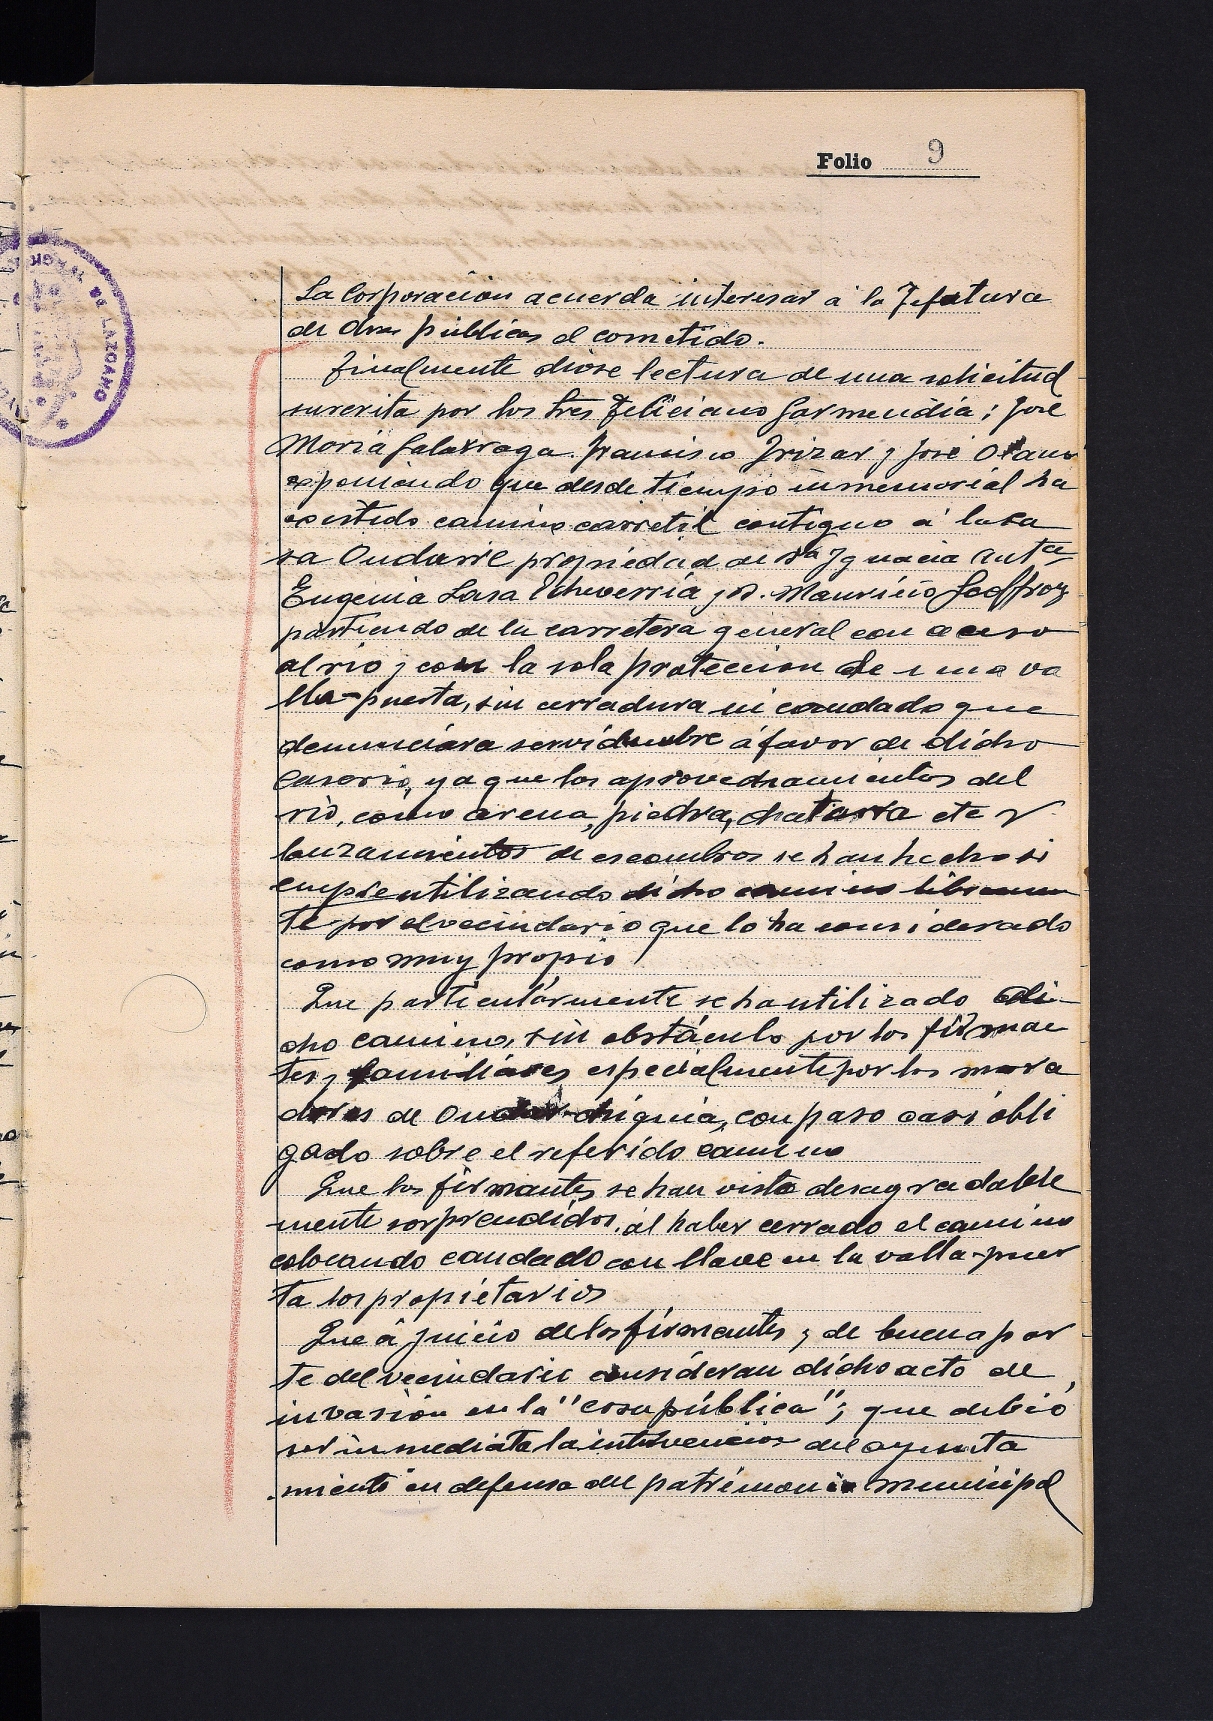 Folio 9
La Corporación acuerda interesar á la Jefatura
de Obras públicas el cometido.
Finalmente dióse lectura de una solicitud
suscrita por los Sres Feliciano Garmendia; José
Maria Galarraga Francisco Irizar y José Otami
exponiendo que desde tiempo inmemorial ha
existido camino carretil contiguo á la ca
sa Ondarre propiedad de Dª Ignacia Antª
Eugenia Lasa Echeverria y D. Mauricio Geoffroy
partiendo de la carretera general con acceso
al rio y con la sola protección de una va
lla-puerta, sin cerradura ni candado que
denunciara servidumbre á favor de dicho
Caserio, ya que los aprovechamientos del
rio, como arena, piedra, chatarra etc y
lanzamientos de escombros se han hecho si
empre utilizando dicho camino libremen
te por el vecindario que lo ha considerado
como muy propio
Que particularmente se ha utilizado di-
cho camino, sin obstáculo por los firman
tes y familiares especialmente por los mora
dores de chiquia, con paso casi obli
gado sobre el referido camino
Que los firmantes se han visto desagradable
mente sorprendidos, al haber cerrado el camino
colocando candado con llave en la valla-puer
ta los propietarios
Que á juicio de los firmantes y de buena par
te del vecindario consideran dicho acto de
invasión en la "cosa pública"; que debió
ser inmediata la intervención del ayunta
miento en defensa del patrimonio municipal
DE LAZCANO